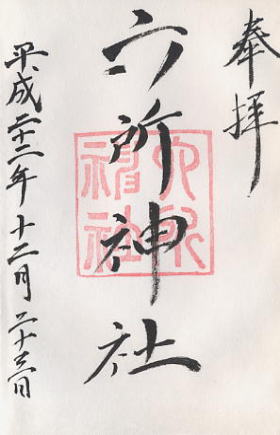 奉拝
六所神社
六所
神社
平成二十二年十二月二十三日